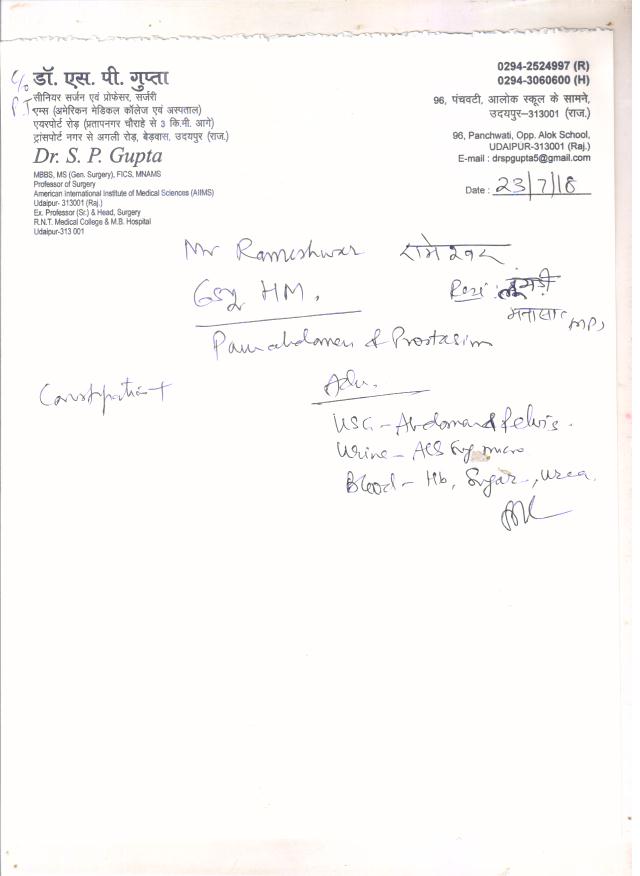 C/o
P.T
डॉ. एस. पी. गुप्ता
सीनियर सर्जन एवं प्रोफेसर, सर्जरी
एम्स (अमेरिकन मेडिकल कॉलेज एवं अस्पताल)
एयरपोर्ट रोड़ (प्रतापनगर चौराहे से 3 कि.मी. आगे)
ट्रांसपोर्ट नगर से अगली रोड़, बेड़वास, उदयपुर (राज.)
Dr. S. P. Gupta
MBBS, MS (Gen. Surgery), FICS, MNAMS
Professor of Surgery
American international Institute of Medical Sciences (AIIMS)
Udaipur- 313001 (Raj.)
Ex. Professor (Sr.) & Head, Surgery
R.N.T. Medical College & M.B. Hospital
Udaipur-313 001
0294-2524997 (R)
0294-3060600 (H)
96, पंचवटी, आलोक स्कूल के सामने,
उदयपुर–313001 (राज.)
96, Panchwati, Opp. Alok School,
UDAIPUR-313001 (Raj.)
E-mail : drspgupta5@gmail.com
Date : 23/7/18
Mr Rameshwar रामेश्वर
65y HM,
मनासा MP
Pain abdomen & Prostasim
Constipation +
Adv.
USG - Abdomen and pelvis.
Urine - micro
Blood - Hb, Sugar, Urea.